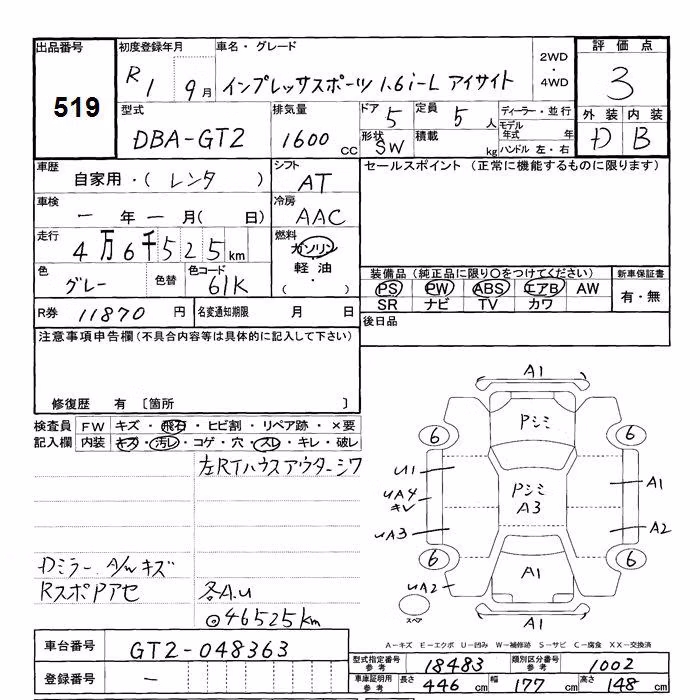 出品番号 初度登録年月 車名・グレード 2WD・4WD 評価点
519 R1 9月 インプレッサスポーツ 1.6i-L アイサイト 3
型式 排気量 ドア 5 定員 5人 ディーラー・並行 外装 内装
DBA-GT2 1600cc 形状 SW 積載 kg モデル年式 年 ハンドル 左・右 D B
車歴 自家用・(レンタ) シフト AT セールスポイント(正常に機能するものに限ります)
車検 一年一月( 日) 冷房 AAC
走行 4万6千525km 燃料 ガソリン・軽油・( )
色 グレー 色替 色コード 61K 装備品(純正品に限り○をつけてください) 新車保証書
PS PW ABS エアB AW 有・無
SR ナビ TV カワ
R券 11870円 名変通知期限 月 日 後日品
注意事項申告欄(不具合内容等は具体的に記入して下さい)
修復歴 有 〔箇所 〕
検査員 FW キズ・飛石・ヒビ割・リペア跡・×要
記入欄 内装 キズ・汚レ・コゲ・穴・スレ・キレ・破レ
左RTハウスアウターシワ
Dミラー A/w キズ
RスポPアセ 各A.U
◎46525km
A1
Pシミ
6 6
U1 A1
UA4 キレ Pシミ A3
UA3 A2
6 6
UA2 A1
スペア A1
A-キズ E-エクボ U-凹み W-補修跡 S-サビ C-腐食 XX-交換済
車台番号 GT2-048363
登録番号 -
型式指定番号 参考 18483 類別区分番号 参考 1002
車庫証明用 参考 長さ 446cm 幅 177cm 高さ 148cm